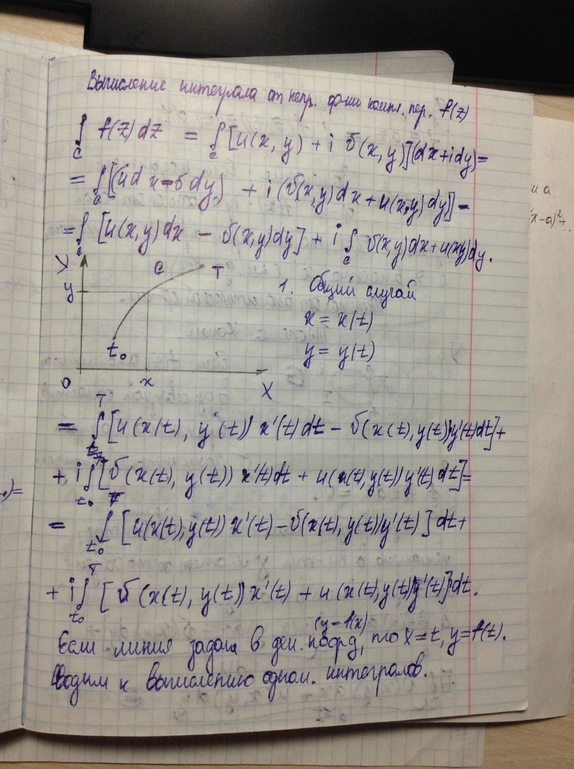 Вычисление интеграла от непр. ф-ции компл. пер. f(z)
∫_C f(z)dz = ∫_C [u(x,y) + i v(x,y)](dx+idy)=
= ∫_C [(u dx - v dy) + i(v(x,y)dx + u(x,y)dy)] =
= ∫_C [u(x,y)dx - v(x,y)dy] + i ∫_C v(x,y)dx + u(x,y)dy.
Y
y
C T
t₀
O x X
1. Общий случай
x = x(t)
y = y(t)
= ∫_{t₀}^{T} [u(x(t), y(t)) x'(t)dt - v(x(t), y(t))y'(t)dt] +
+ i ∫_{t₀}^{T} [v(x(t), y(t)) x'(t)dt + u(x(t), y(t)) y'(t)dt] =
= ∫_{t₀}^{T} [u(x(t), y(t)) x'(t) - v(x(t), y(t))y'(t)] dt +
+ i ∫_{t₀}^{T} [v(x(t), y(t)) x'(t) + u(x(t), y(t))y'(t)]dt.
(y=f(x))
Если линия задана в дек. коорд, то x=t, y=f(t).
водим к вычислению одном. интегралов.
(x-a)²+